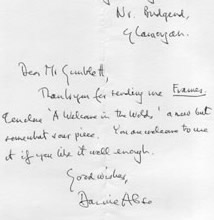 Nr. Bridgend,
Glamorgan.
Dear Mr Gumblett,
Thank you for sending me Frames.
I enclose 'A Welcome in the Wolds' a new but
somewhat  piece. You are welcome to use
it if you like it well enough.
Good wishes,
Dannie Abse